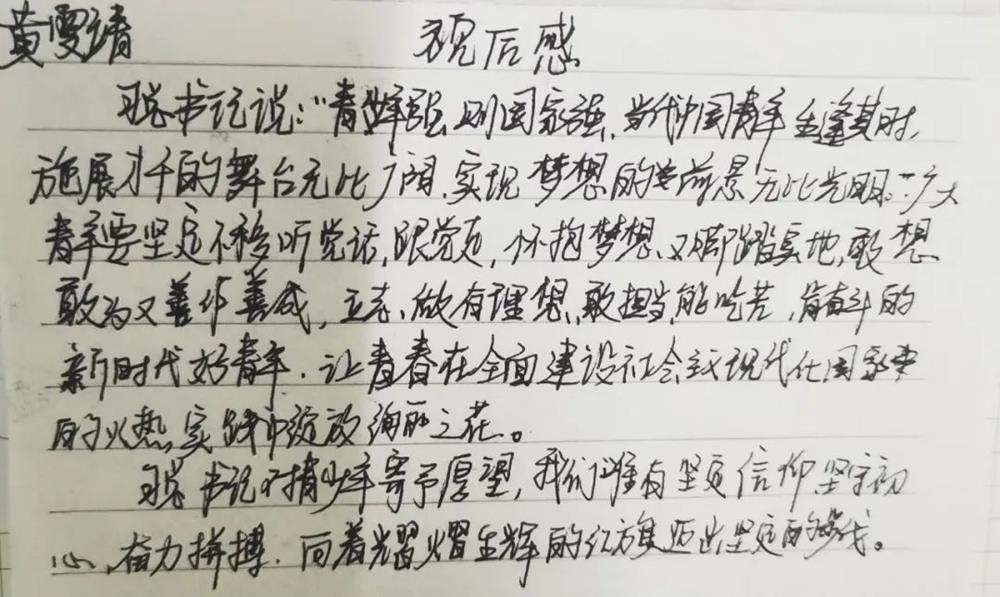 黄雯靖 观后感
习总书记说:“青年强,则国家强,当代中国青年生逢其时,
施展才干的舞台无比广阔,实现梦想的前景无比光明.”广大
青年要坚定不移听党话,跟党走,怀抱梦想又脚踏实地,敢想
敢为又善作善成,立志做有理想、敢担当,能吃苦,肯奋斗的
新时代好青年.让青春在全面建设社会主义现代化国家
的火热实践中绽放绚丽之花。
习总书记对青少年寄予厚望,我们唯有坚定信仰坚守初
心,奋力拼搏.向着熠熠生辉的红旗迈出坚定的步伐。